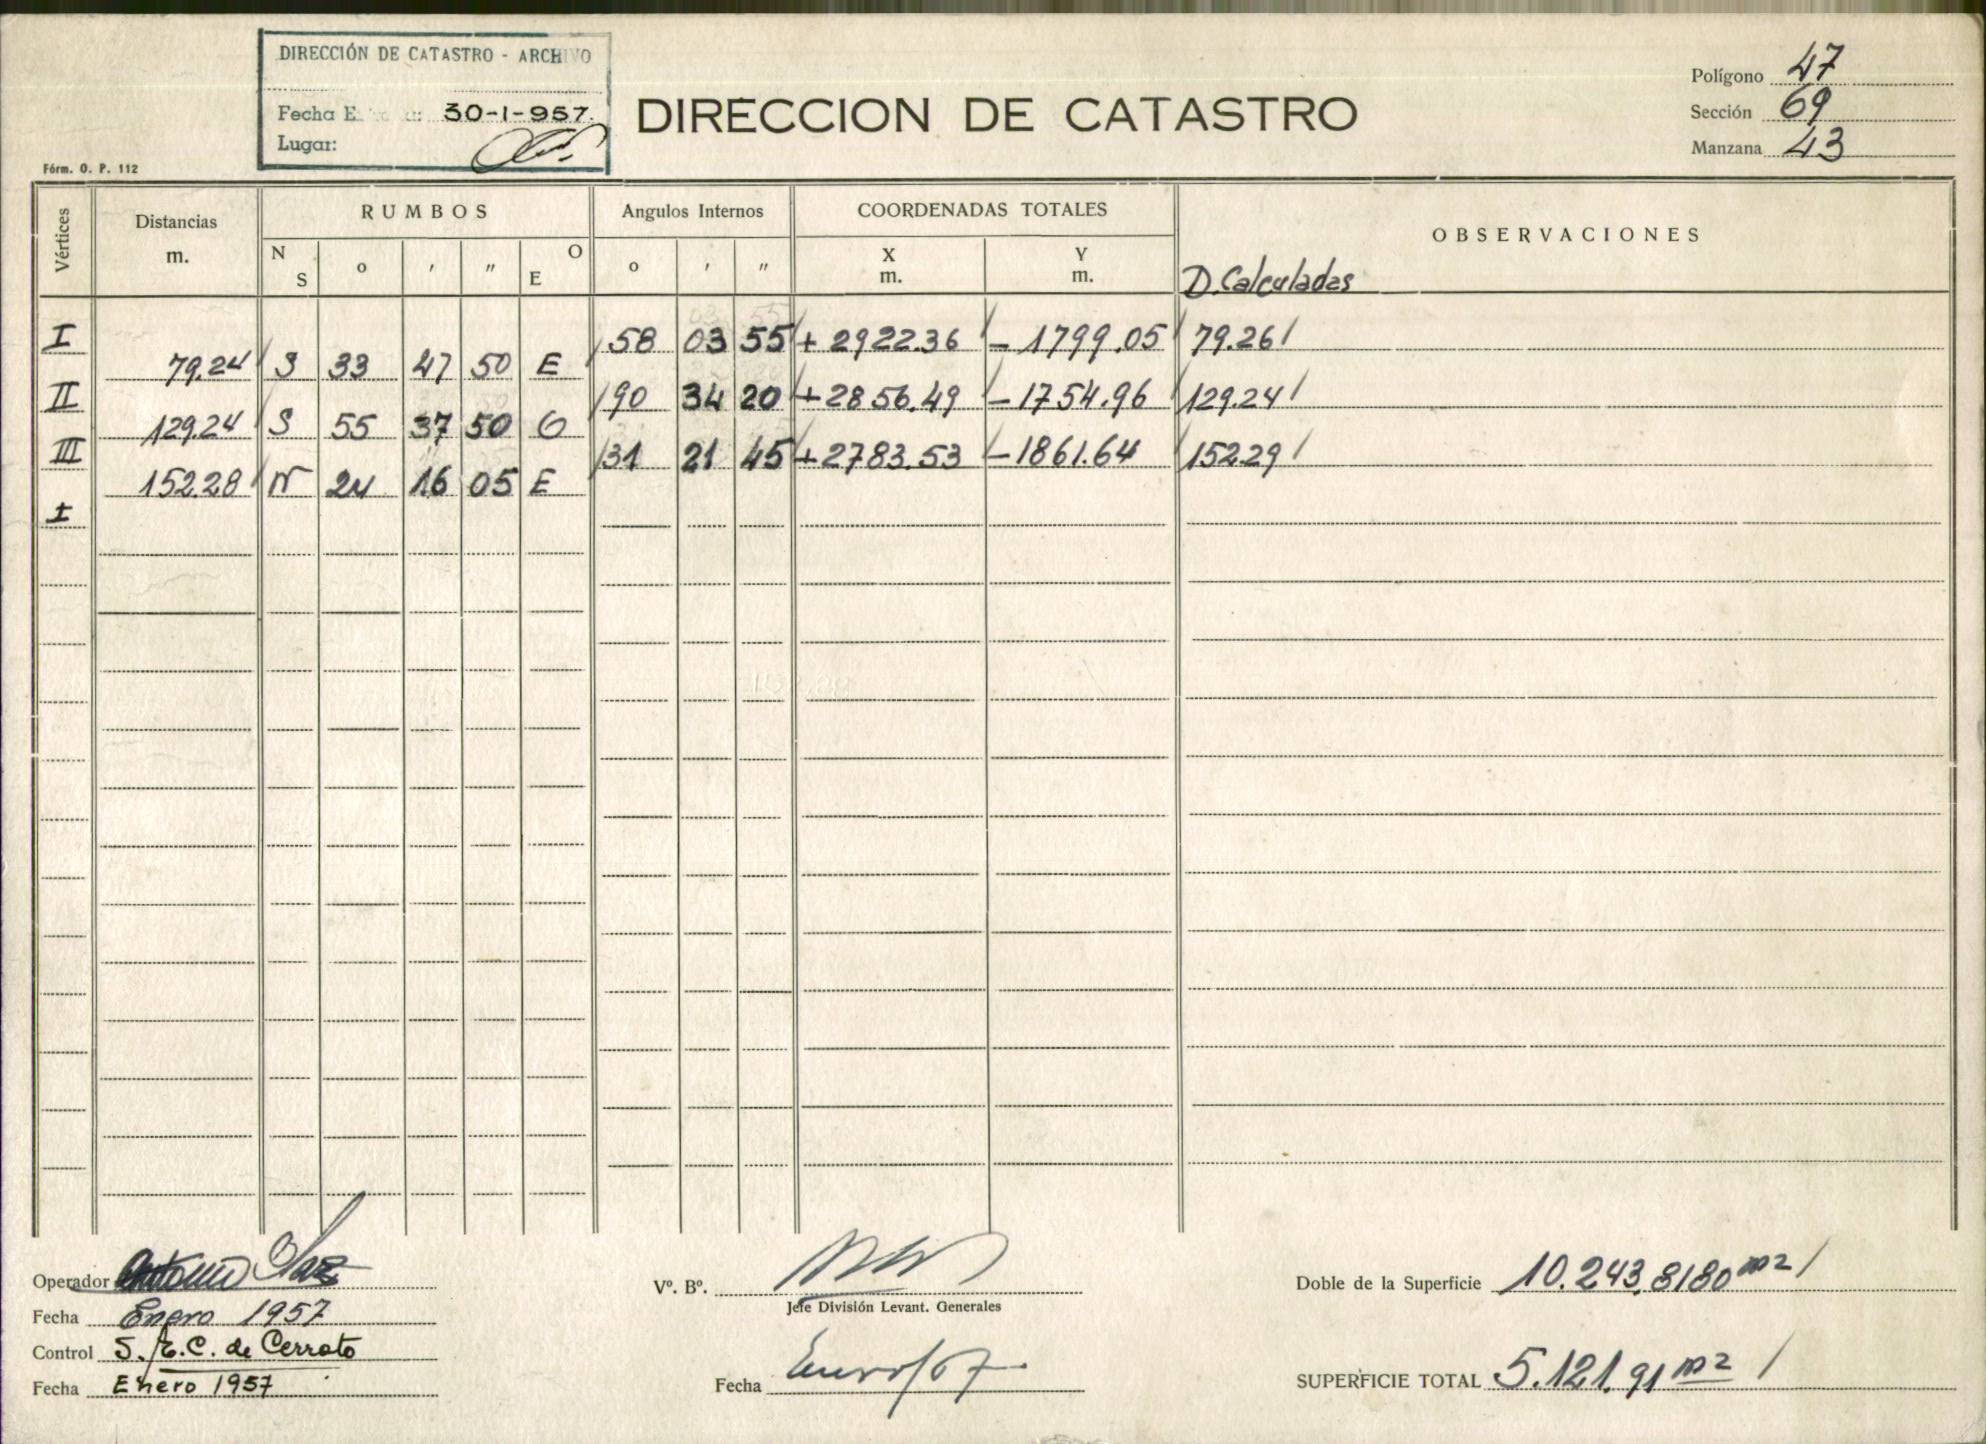 DIRECCIÓN DE CATASTRO - ARCHIVO
Fecha E 30-1-957.
Lugar:
DIRECCION DE CATASTRO
Polígono 47
Sección 69
Manzana 43
Fórm. O. P. 112
Vértices
Distancias
m.
RUMBOS
N
S
o
,
,,
O
E
Angulos Internos
o
,
,,
COORDENADAS TOTALES
X
m.
Y
m.
OBSERVACIONES
D. Calculadas
I 58 03 55 + 2922.36 - 1799.05 79.26
79.24 S 33 47 50 E
II 90 34 20 + 2856.49 - 1754.96 129.24
129.24 S 55 37 50 O
III 31 21 45 + 2783.53 - 1861.64 152.29
152.28 N 24 16 05 E
I
Operador Antonio
Fecha Enero 1957
Control S. E. C. de Cerrato
Fecha Enero 1957
Vº. Bº.
Jefe División Levant. Generales
Fecha Enero/57
Doble de la Superficie 10.243,8180 m2
SUPERFICIE TOTAL 5.121.91 m2